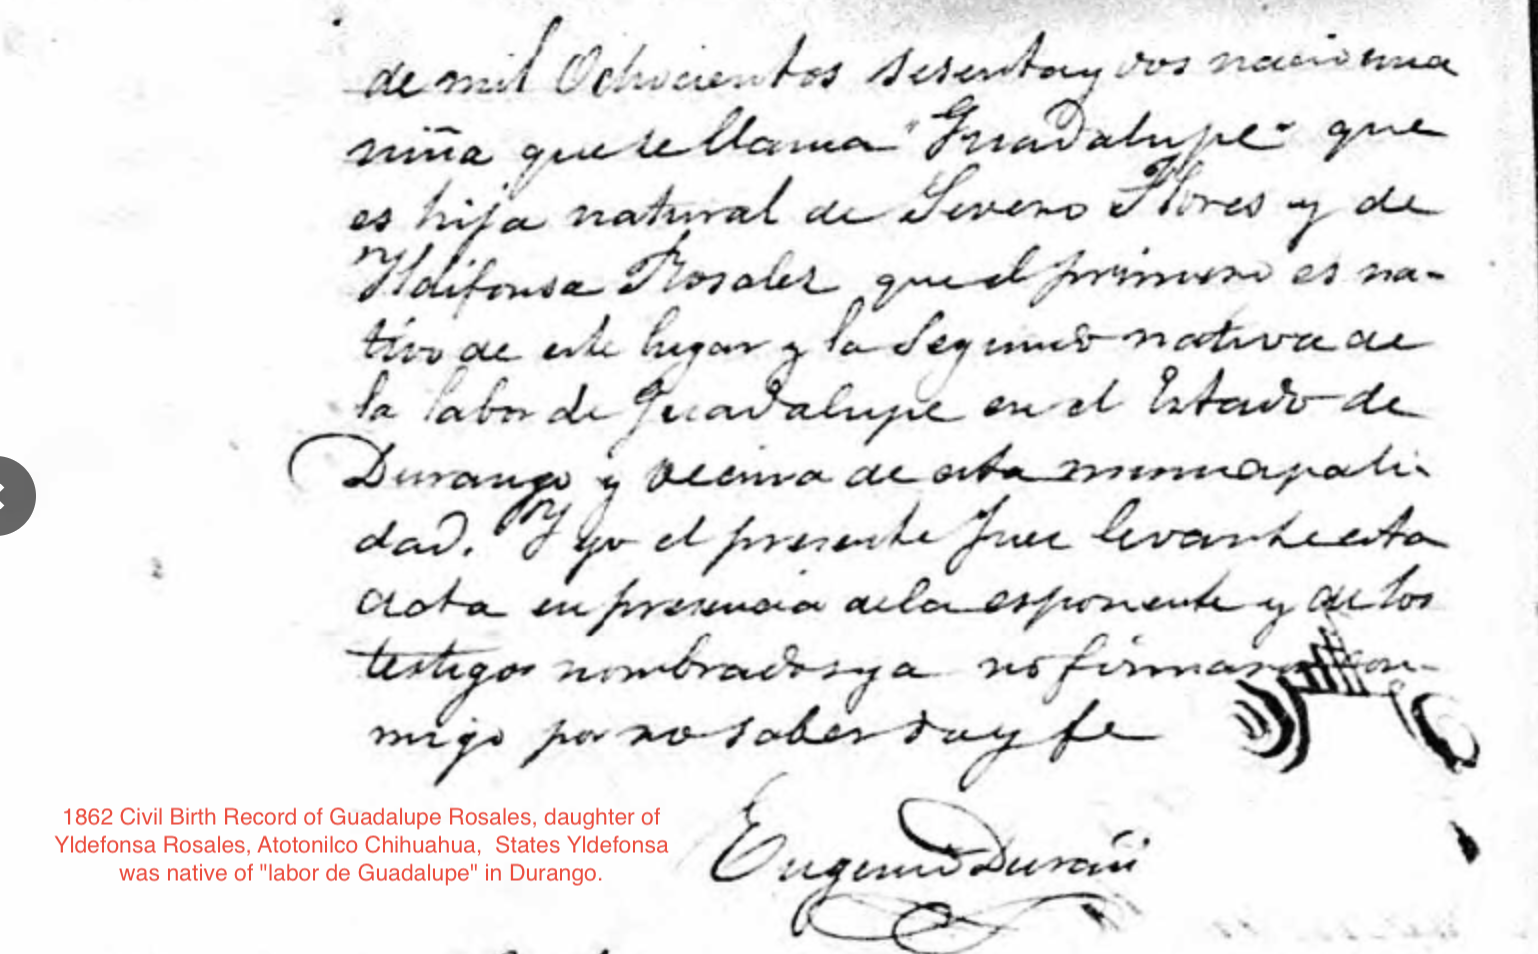 de mil Ochocientos sesenta y dos nacio una
niña que se llama "Guadalupe" que
es hija natural de Severo Flores y de
Yldifonsa Rosales que el primero es na-
tivo de este lugar y la Segundo nativa de
la labor de Guadalupe en el Estado de
Durango y vecina de esta municipali-
dad. Y yo el presente Juez levante esta
acta en presencia de la esponente y de los
testigos nombrados y a no firmaron con-
migo por no saber doy fe
Eugenio Durán
1862 Civil Birth Record of Guadalupe Rosales, daughter of
Yldefonsa Rosales, Atotonilco Chihuahua, States Yldefonsa
was native of "labor de Guadalupe" in Durango.